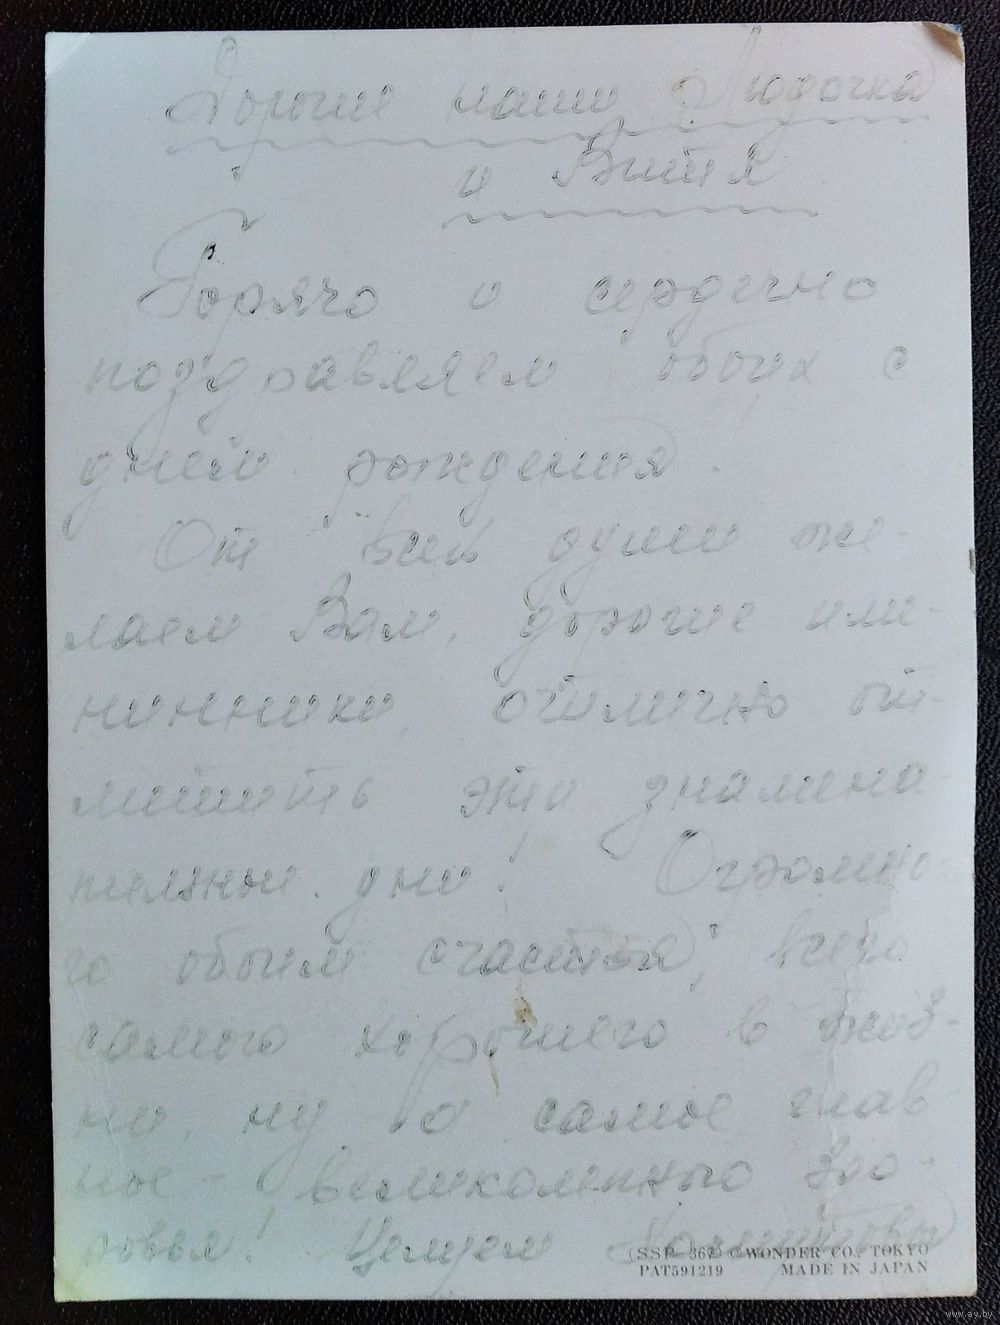 Дорогие наши Людочка
и Витя
Горячо и сердечно
поздравляем обоих с
днем рождения.
От всей души же-
лаем Вам, дорогие име-
нинники, отлично от-
метить эти знамена-
тельные дни! Огромно-
го обоим счастья, всего
самого хорошего в жиз-
ни, ну а самое глав
ное - великолепного здо-
ровья! Целуем
(SSP-362 WONDER CO. TOKYO
PAT591219 MADE IN JAPAN
www.ay.by